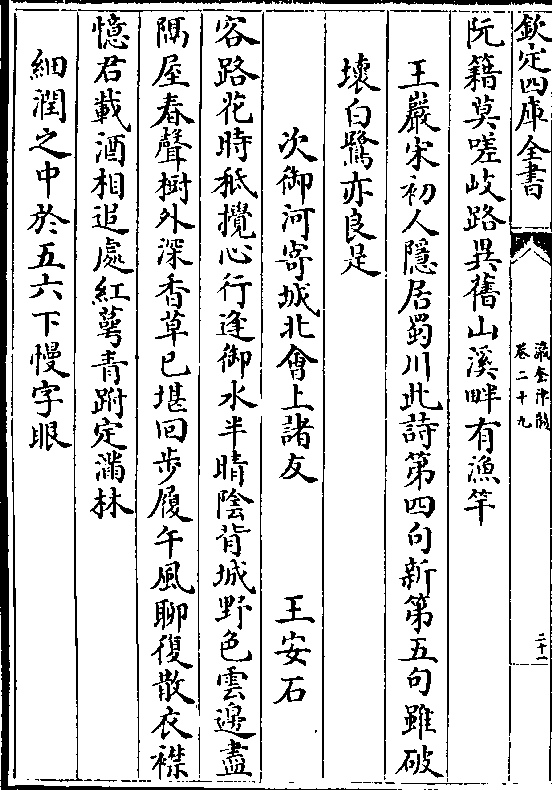 欽定四庫全書
瀛奎律髓
卷二十九
二十一
阮籍莫嗟岐路異舊山溪畔有漁竿
王巖宋初人隱居蜀川此詩第四句新第五句雖破
壞白鷺亦良是
次御河寄城北會上諸友
王安石
客路花時秪攪心行逢御水半晴陰背城野色雲邊盡
隔屋春聲樹外深香草已堪回步履午風聊復散衣襟
憶君載酒相追處紅萼青跗定滿林
細潤之中於五六下慢字眼